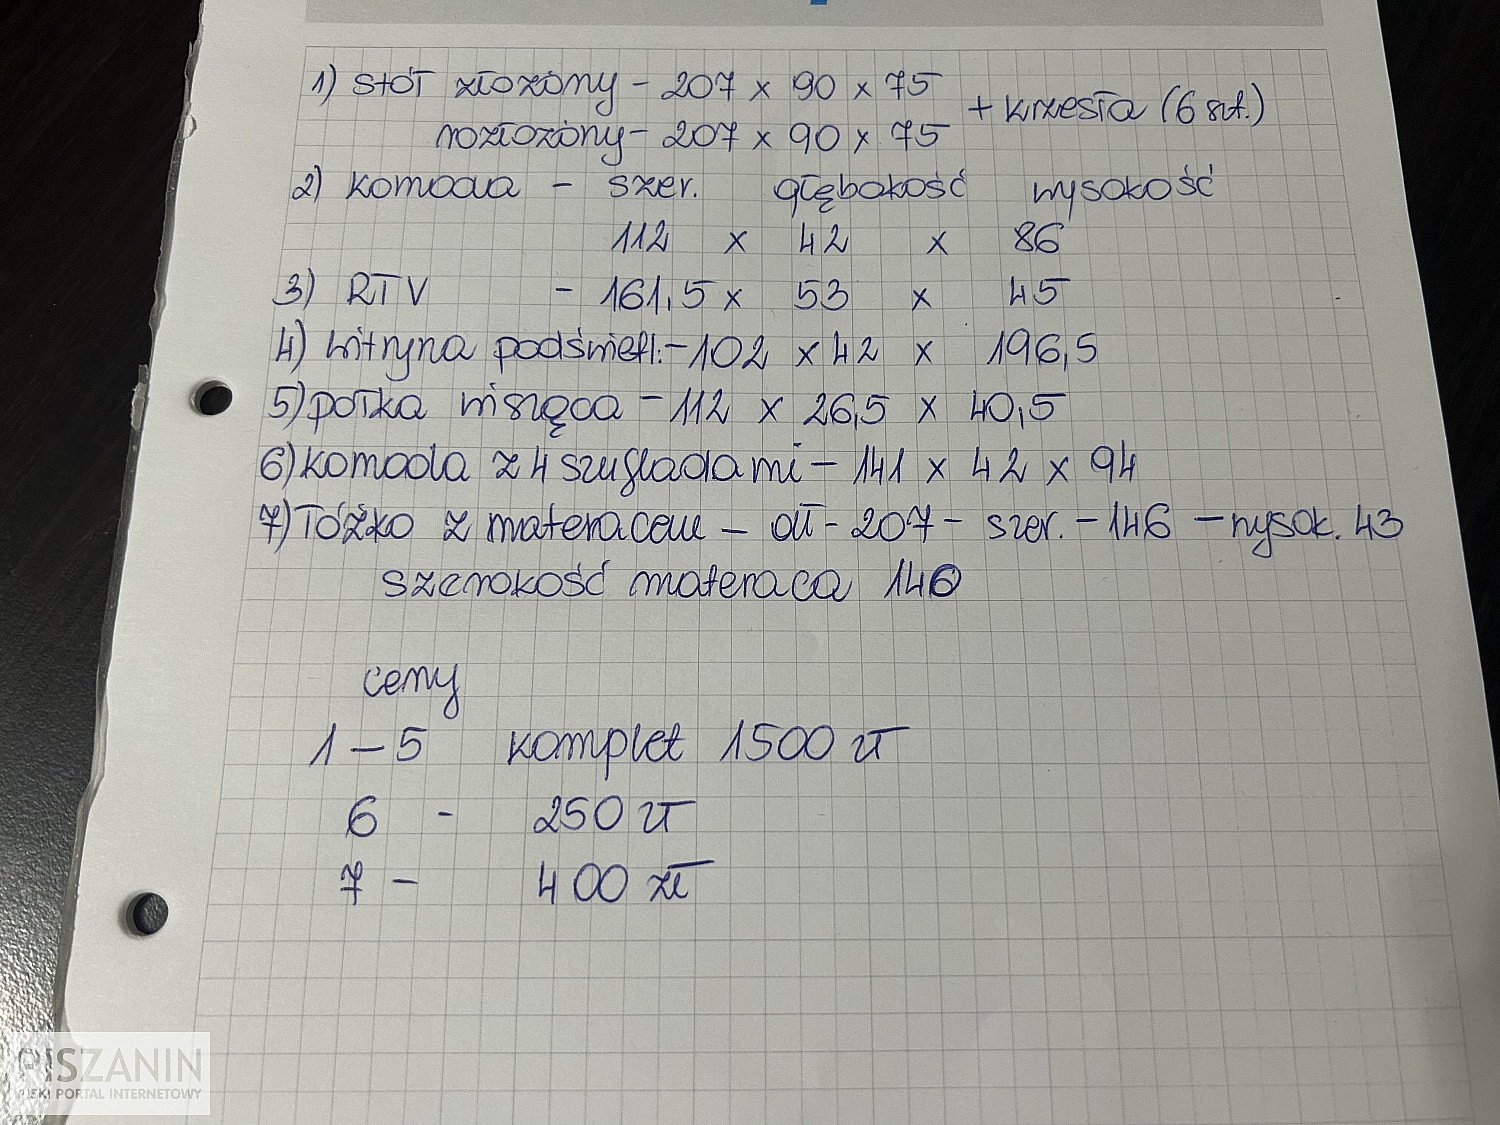 1) stół złożony - 207 x 90 x 75
rozłożony - 207 x 90 x 75
+ krzesła (6 szt.)
2) komoda - szer. głębokość wysokość
112 x 42 x 86
3) RTV - 161,5 x 53 x 45
4) witryna podświetl. - 102 x 42 x 196,5
5) półka wisząca - 112 x 26,5 x 40,5
6) komoda z 4 szufladami - 141 x 42 x 94
7) łóżko z materacem - dł - 207 - szer. - 146 - wysok. 43
szerokość materaca 140
ceny
1 - 5 komplet 1500 zł
6 - 250 zł
7 - 400 zł
PISZANIN
PISKI PORTAL INTERNETOWY